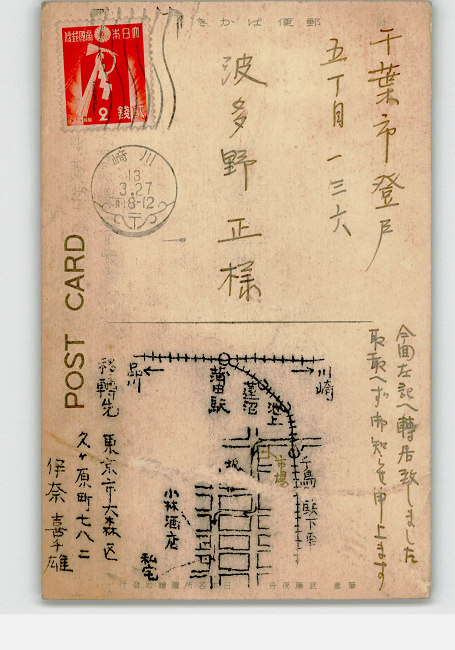 郵便はかき
大日本帝國郵便
2
貳錢
川崎
13
3.27
前8-12
POST CARD
千葉市登戸
五丁目一三六
波多野正様
今回左記へ轉居致しました
取敢へず御知らせ申上ます
川崎
品川
蒲田駅
蓮沼
池上
千鳥
市場
小林酒店
私宅
移轉先
東京市大森区
久ヶ原町七八二
伊奈喜千雄